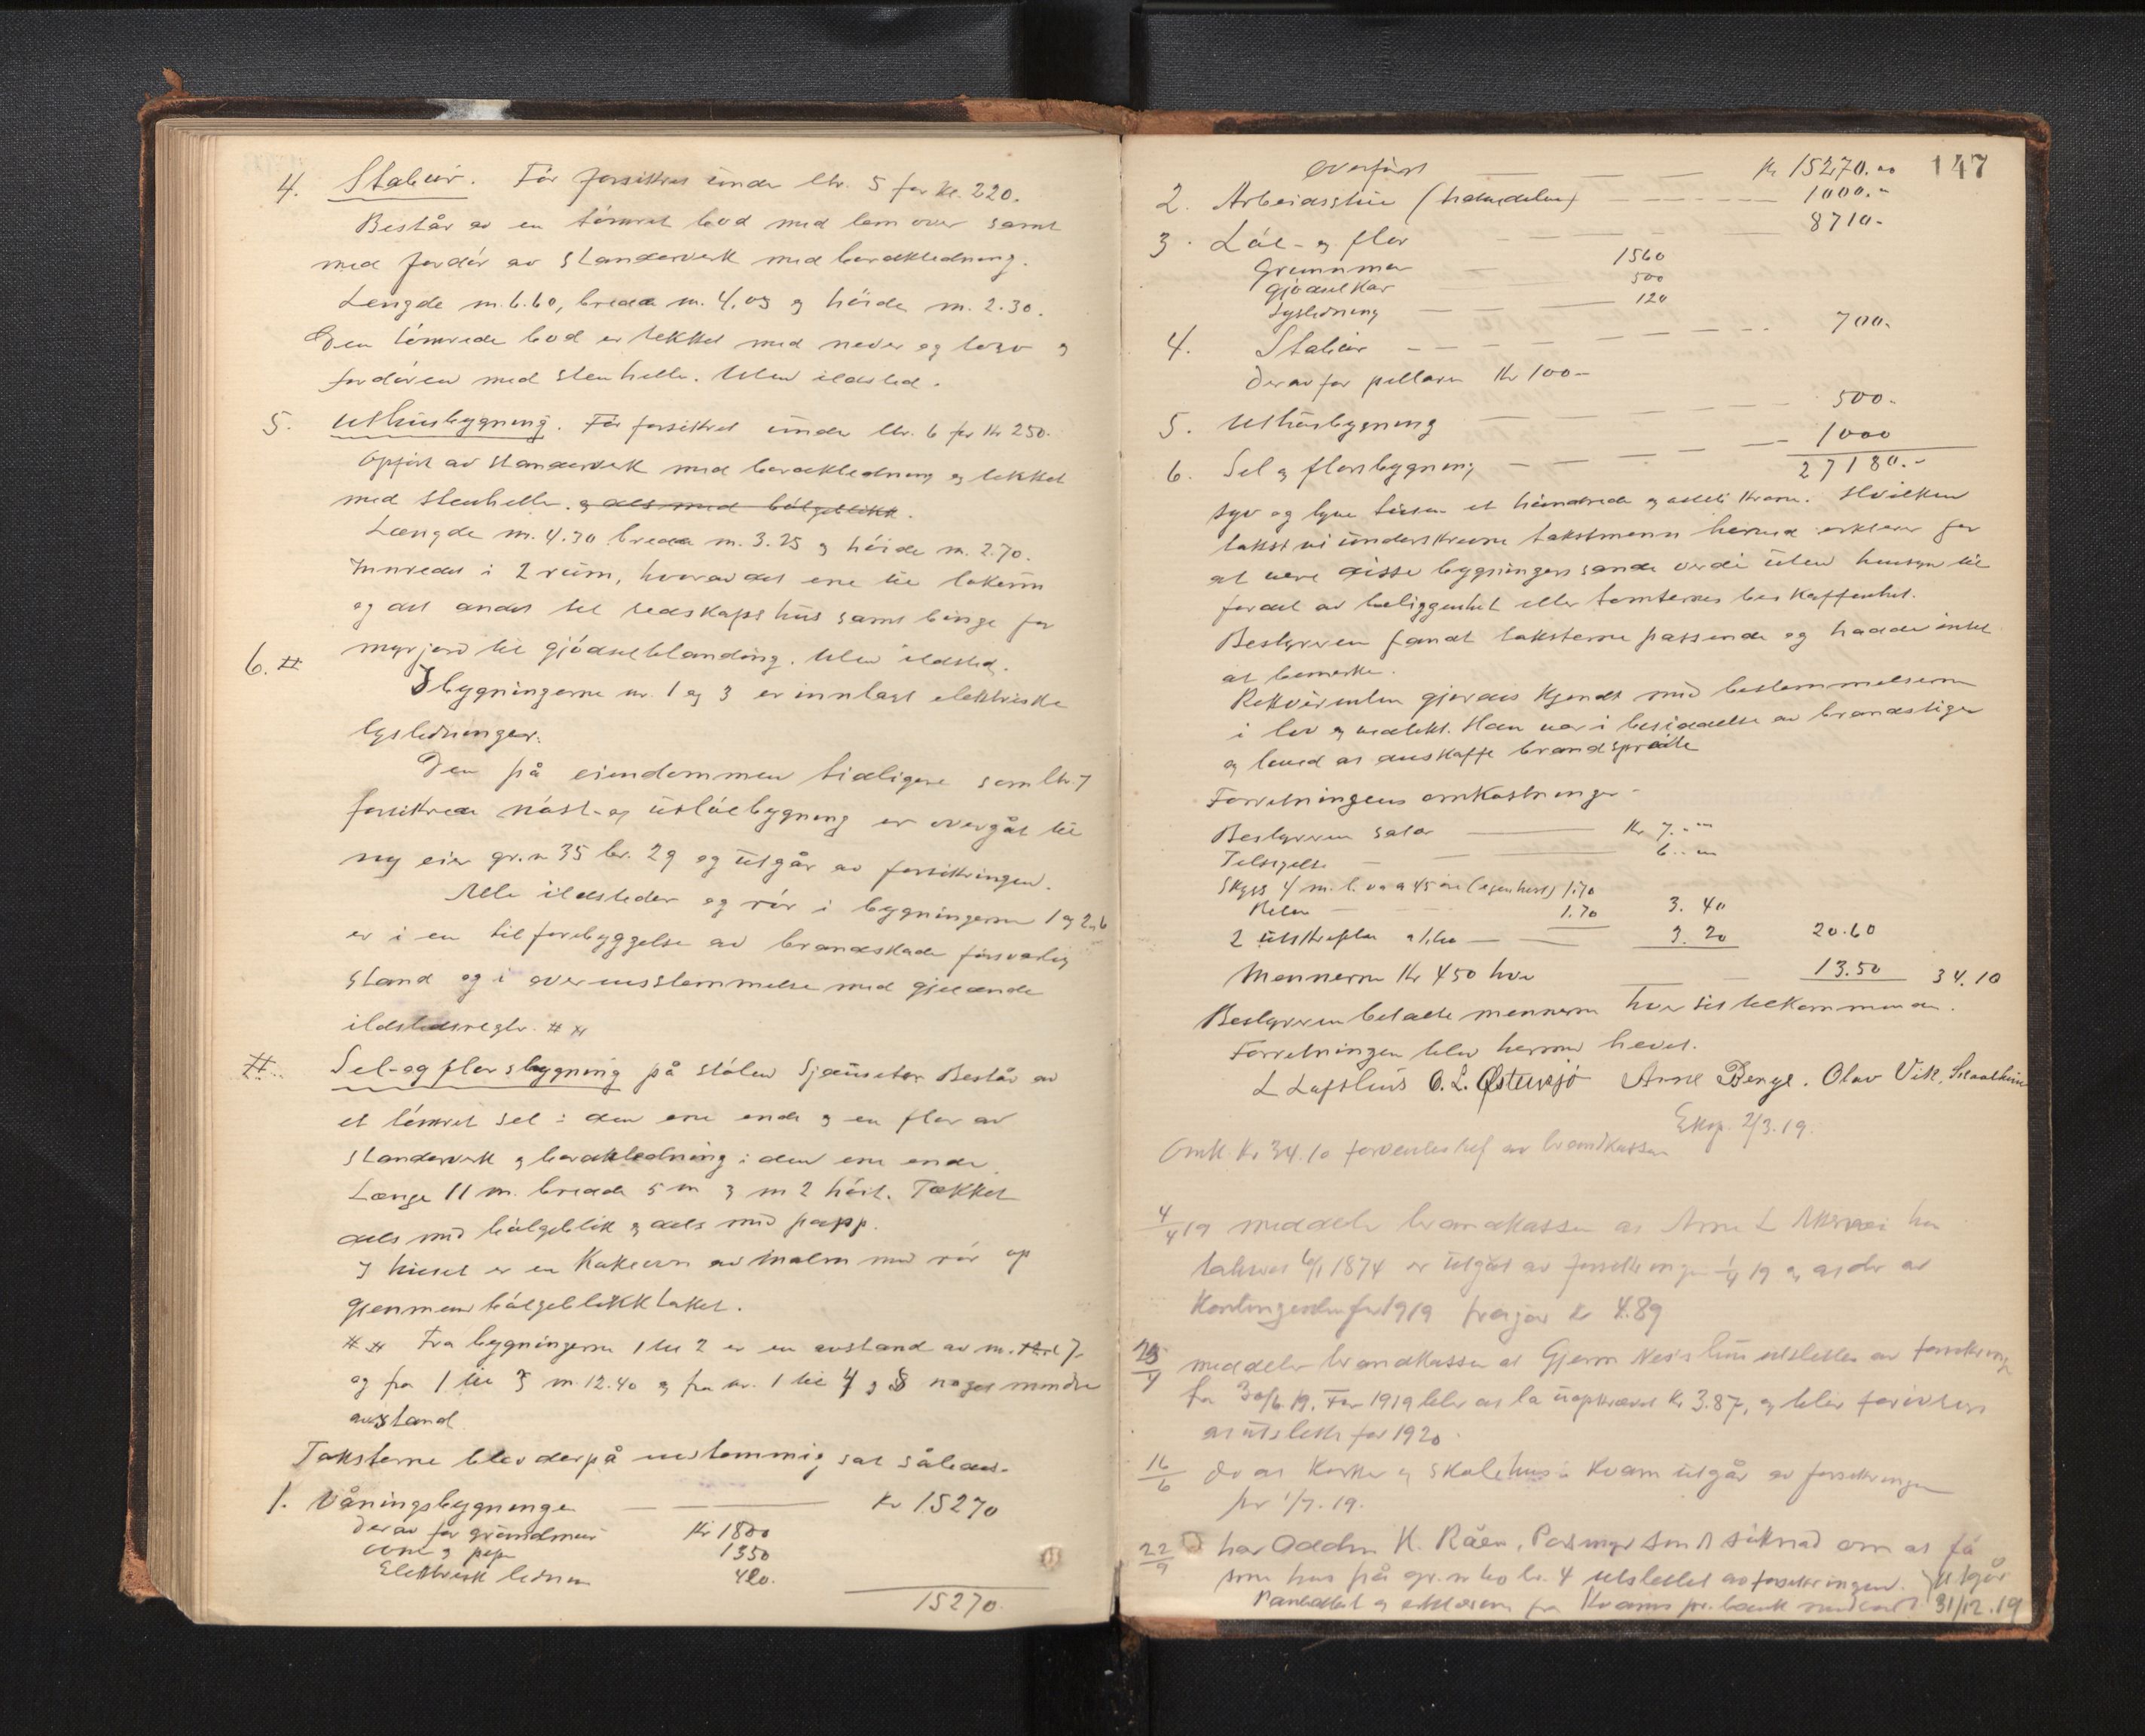 4. Stabur. Før forsikret under ltr. 5 for kr. 220.
Består av en tømret bod med lem over samt
med fordør av standerverk med bordklædning.
Lengde m. 6.60, bredde m. 4,05 og høide m. 2.30.
Den tømrede bod er tekket med never og torv og
fordøren med stenhelle. Uten ildsted.
5. Uthusbygning. Før forsikret under ltr. 6 for Kr 250.
Opført av standerverk med bordklædning og tekket
med stenhelle og dels med bølgeblikk.
Længde m. 4.30 bredde m. 3.25 og høide m. 2.70.
Innredet i 2 rum, hvorav det ene til
og det andet til redskapshus samt binge for
myrjord til gjødselblanding. Uten ildsted.
6. #
I bygningerne nr. 1 og 3 er innlagt elektriske
lysledninger.
Den på eiendommen tidligere som ltr. 7
forsikrede nøst- og utløebygning er overgåt til
ny eier gr. n 35 br. 29 og utgår av forsikringen.
Alle ildsteder og rør i bygningerne 1 og 2 og 6
er i en til forebyggelse av brandskade forsvarlig
stand og i overensstemmelse med gjeldende
ildstedsregler. # #
# Sel- og florsbygning på stølen Består av
et tømret sel i den ene ende og en flor av
standerverk og bordklædning i den ene ende.
Længe 11 m. bredde 5 m og m 2 høit. Tækket
dels med bølgeblik og dels med papp.
I huset er en Kakeovn av malm med rør op
gjennem bølgeblikktaket.
# # Fra bygningerne 1 til 2 er en avstand av m. 7
og fra 1 til 3 m. 12.40 og fra nr. 1 til 4 og 5 noget mindre
avstand.
Taksterne blev derpå enstemmig sat således.
1. Våningsbygningen Kr 15270
Derav for grundmur Kr 1800
ovne og piper 1350
Elektrisk ledning 420.
15270.
147
Overført Kr 15270.00
2. Arbeidsstue 1000.-
3. Løe- og flor 8710-
Grunnmur 1560
Gjødselkar 500
Lysledning 120
4. Stabur 700.
Derav for pillarer Kr 100-
5. Uthusbygning 500.
6. Sel og florsbygning 1000
27180.-
syv og tyve tusen et hundrede og otteti kroner. Hvilken
takst vi underskrevne takstmenn herved erklærer for
at være disse bygningers sande verdi uten hensyn til
fordel av beliggenhet eller tomternes beskaffenhet.
Bestyreren fandt taksterne passende og hadde intet
at bemerke.
Rekvirenten gjordes kjendt med bestemmelserne
i lov og vedtekt. Han var i besiddelse av brandstiger
og lovet at anskaffe brandsprøite
Forretningens omkostninger -
Bestyreren salær Kr 7.-
Tilsigelse 6.-
Skyss 4 m. l. v. a 45 øre (egen hest) 1.70
Retur 1.70 3.40
2 utskrifter a 1.60 3.20 20.60
Mennerne Kr 4.50 hver 13.50 34.10
Bestyreren betalte mennerne hver sit tilkommende.
Forretningen blev hermed hevet.
L Lofthus O. L. Østensjø Arne Berge. Olav Vik,
Eksp. 2/3.19.
Omk Kr 34.10 forventes hef av brandkassen
4/4 19 meddeler brandkassen at Arne L hus
takseret 6/1 1874 er utgåt av forsikringen 1/4 19 og at der av
Kontingenten for 1919 fragår kr 4.89
25/4 meddeler brandkassen at Gjerm Nes's hus utslettes av forsikringen
fra 30/6.19. For 1919 blev at la uopkrævet kr 3.87, og blir forøvrig
at utslette for 1920.
16/6 Do at Kirke og skolehus i Kvam utgår av forsikringen
pr 1/7.19.
22/9 har Oddm K. Råen, søknad om at få
sine hus på gr. n 60 br. 4 utslettet av forsikringen. utgår
Pantattest og erklæring fra Kvams pr. bank 31/12.19